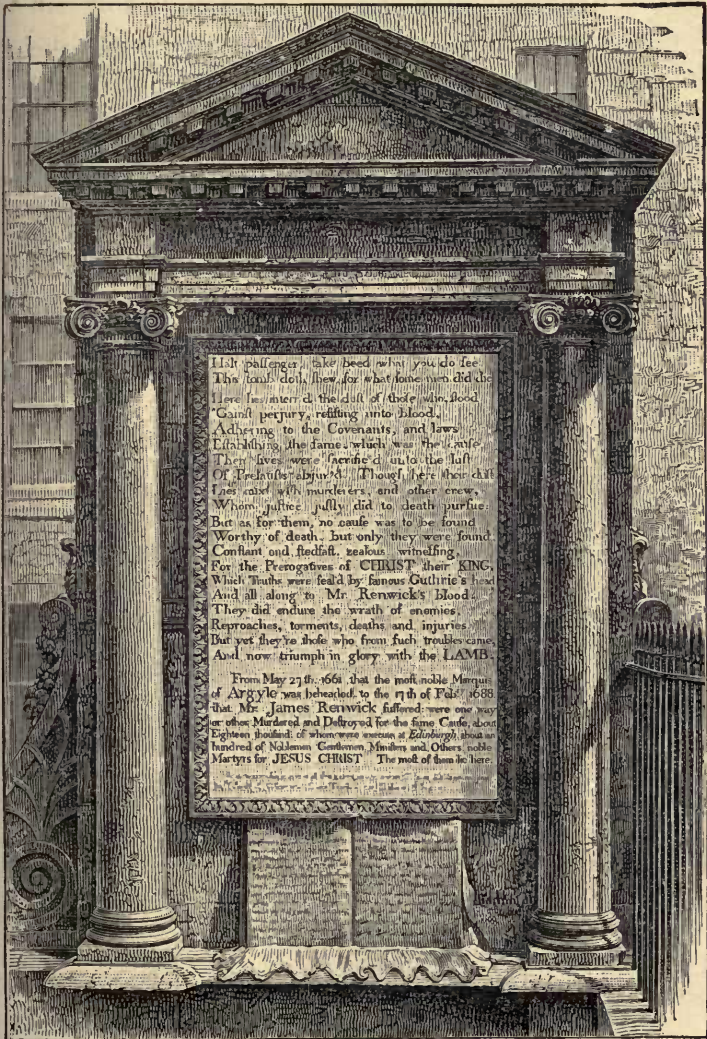 Halt passenger, take heed what you do see
This tomb doth shew, for what some men did die
Here lies interr'd the dust of those who stood
'Gainst perjury, resisting unto blood,
Adhering to the Covenants, and laws
Establishing the same, which was the cause
Their lives were sacrific'd unto the lust
Of Prelatists abjur'd. Though here their dust
Lies mixt with murderers, and other crew,
Whom justice justly did to death pursue:
But as for them, no cause was to be found
Worthy of death, but only they were found
Constant and stedfast, zealous witnessing,
For the Prerogatives of CHRIST their KING,
Which Truths were seal'd by famous Guthrie's head
And all along to Mr. Renwick's blood.
They did endure the wrath of enemies,
Reproaches, torments, deaths and injuries
But yet they're those who from such troubles came,
And now triumph in glory with the LAMB.
From May 27th. 1661, that the most noble Marquis
of Argyle was beheaded, to the 17th of Feby. 1688
that Mr. James Renwick suffered; were one way
or other Murdered and Destroyed for the same Cause, about
Eighteen thousand: of whom were execute at Edinburgh, about an
hundred of Noblemen Gentlemen, Ministers and Others; noble
Martyrs for JESUS CHRIST. The most of them lie here.